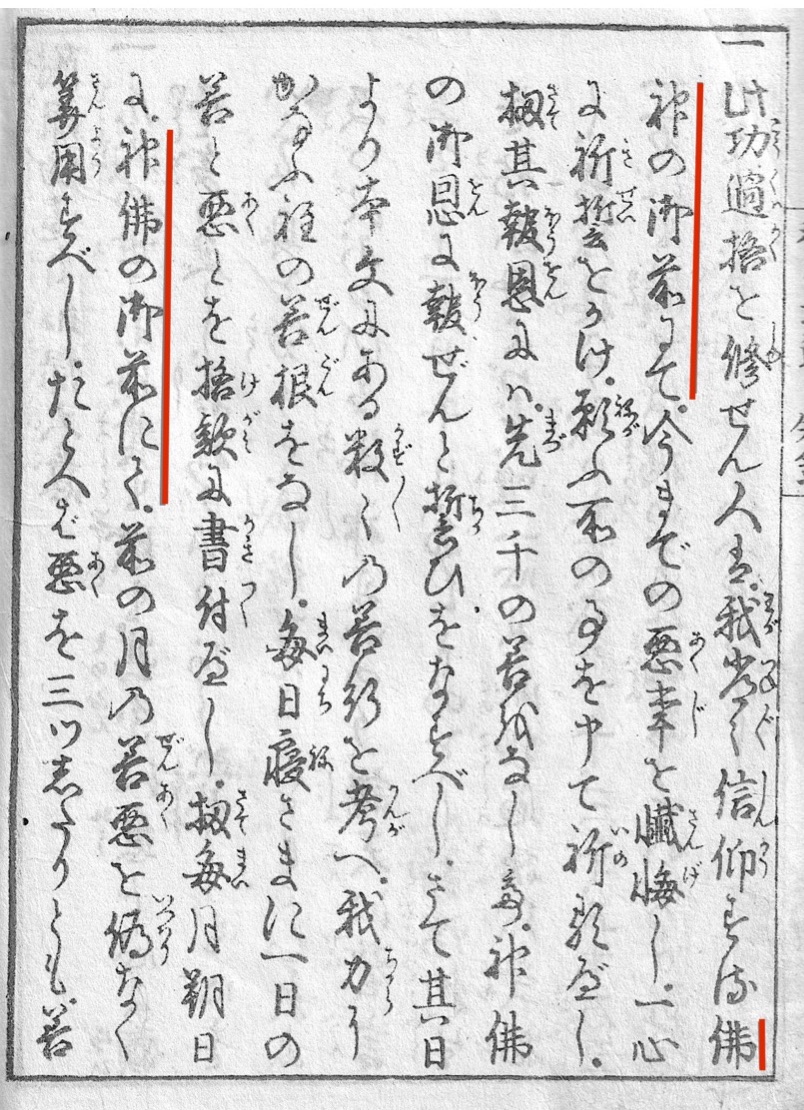 一此功過格を修せん人は。我常〻信仰する佛
神の御前にて。今までの悪事を懺悔し。一心
に祈誓をかけ。願ふ所の事を申て祈るべし。
扨其報恩には。先三千の善をなし神佛
の御恩に報ぜんと誓ひをなすべし。さて其日
より本文にある数〻の善行を考へ。我力に
かなふ程の善根をなし。毎日寝さまに一日の
善と悪とを格款に書付べし。扨毎月朔日
に。神佛の御前にて。前の月の善悪を偽なく
算用すべし。たとへば悪を三ツしたりとも。善